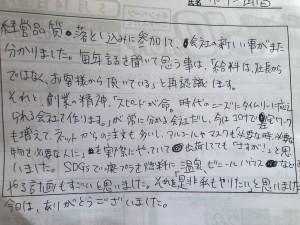 経営品質の落とし込みに参加して、会社の新しい事がまた
分かりました。毎年話を聞いて思う事は、給料は、社長から
ではなく、お客様から頂いている」と再認識します。
それと、創業の精神、「スピードが命。時代のニーズにタイムリーに応え
られる会社で作ります。」が常に分かる会社だし、今はコロナで
も増えてネットからの注文も多いし、アルコールやマスクも必要な時、必要な
物を必要な人に」を実際にやっていて出荷してても「すごい!」と思
いました。SDGsで廃プラを燃料に「温泉、ビニールハウスなど
やる計画もすごいと思いました。それを是非私もやりたいと思いました
今日は、ありがとうございました。